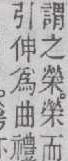 謂之榮。榮而
引伸爲曲禮